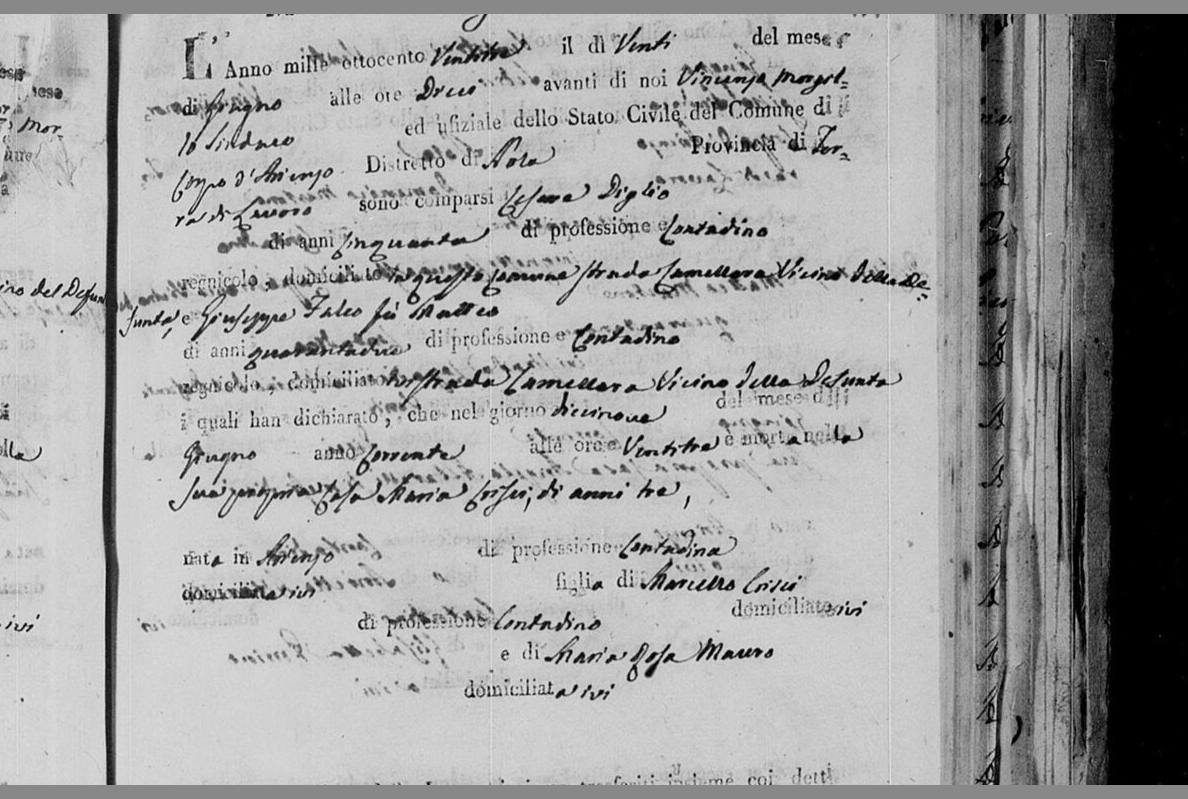 L' Anno mille ottocento Ventitre il dì Venti del mese
di Giugno alle ore Dieci avanti di noi Vincenzo Morgil=
lo Sindaco ed ufiziale dello Stato Civile del Comune di
Corpo d'Arienzo Distretto di Nola Provincia di Ter=
ra di Lavoro sono comparsi Cesare Diglio
di anni Cinquanta di professione Contadino
regnicolo, domiciliato in questo Comune strada Camellara Vicino della De=
funta, e Giuseppe Falco fù Matteo
di anni quarantadue di professione Contadino
regnicolo, domiciliato strada Camellara Vicino della Defunta
i quali han dichiarato, che nel giorno diecinove del mese di
Giugno anno Corrente alle ore Ventitre è morta nella
sua propria Casa Maria Crisci, di anni tre,
nata in Arienzo di professione Contadina
domiciliata ivi figlia di Marcello Crisci
di professione Contadino domiciliato ivi
e di Maria Rosa Mauro
domiciliata ivi
trasferiti insieme coi detti